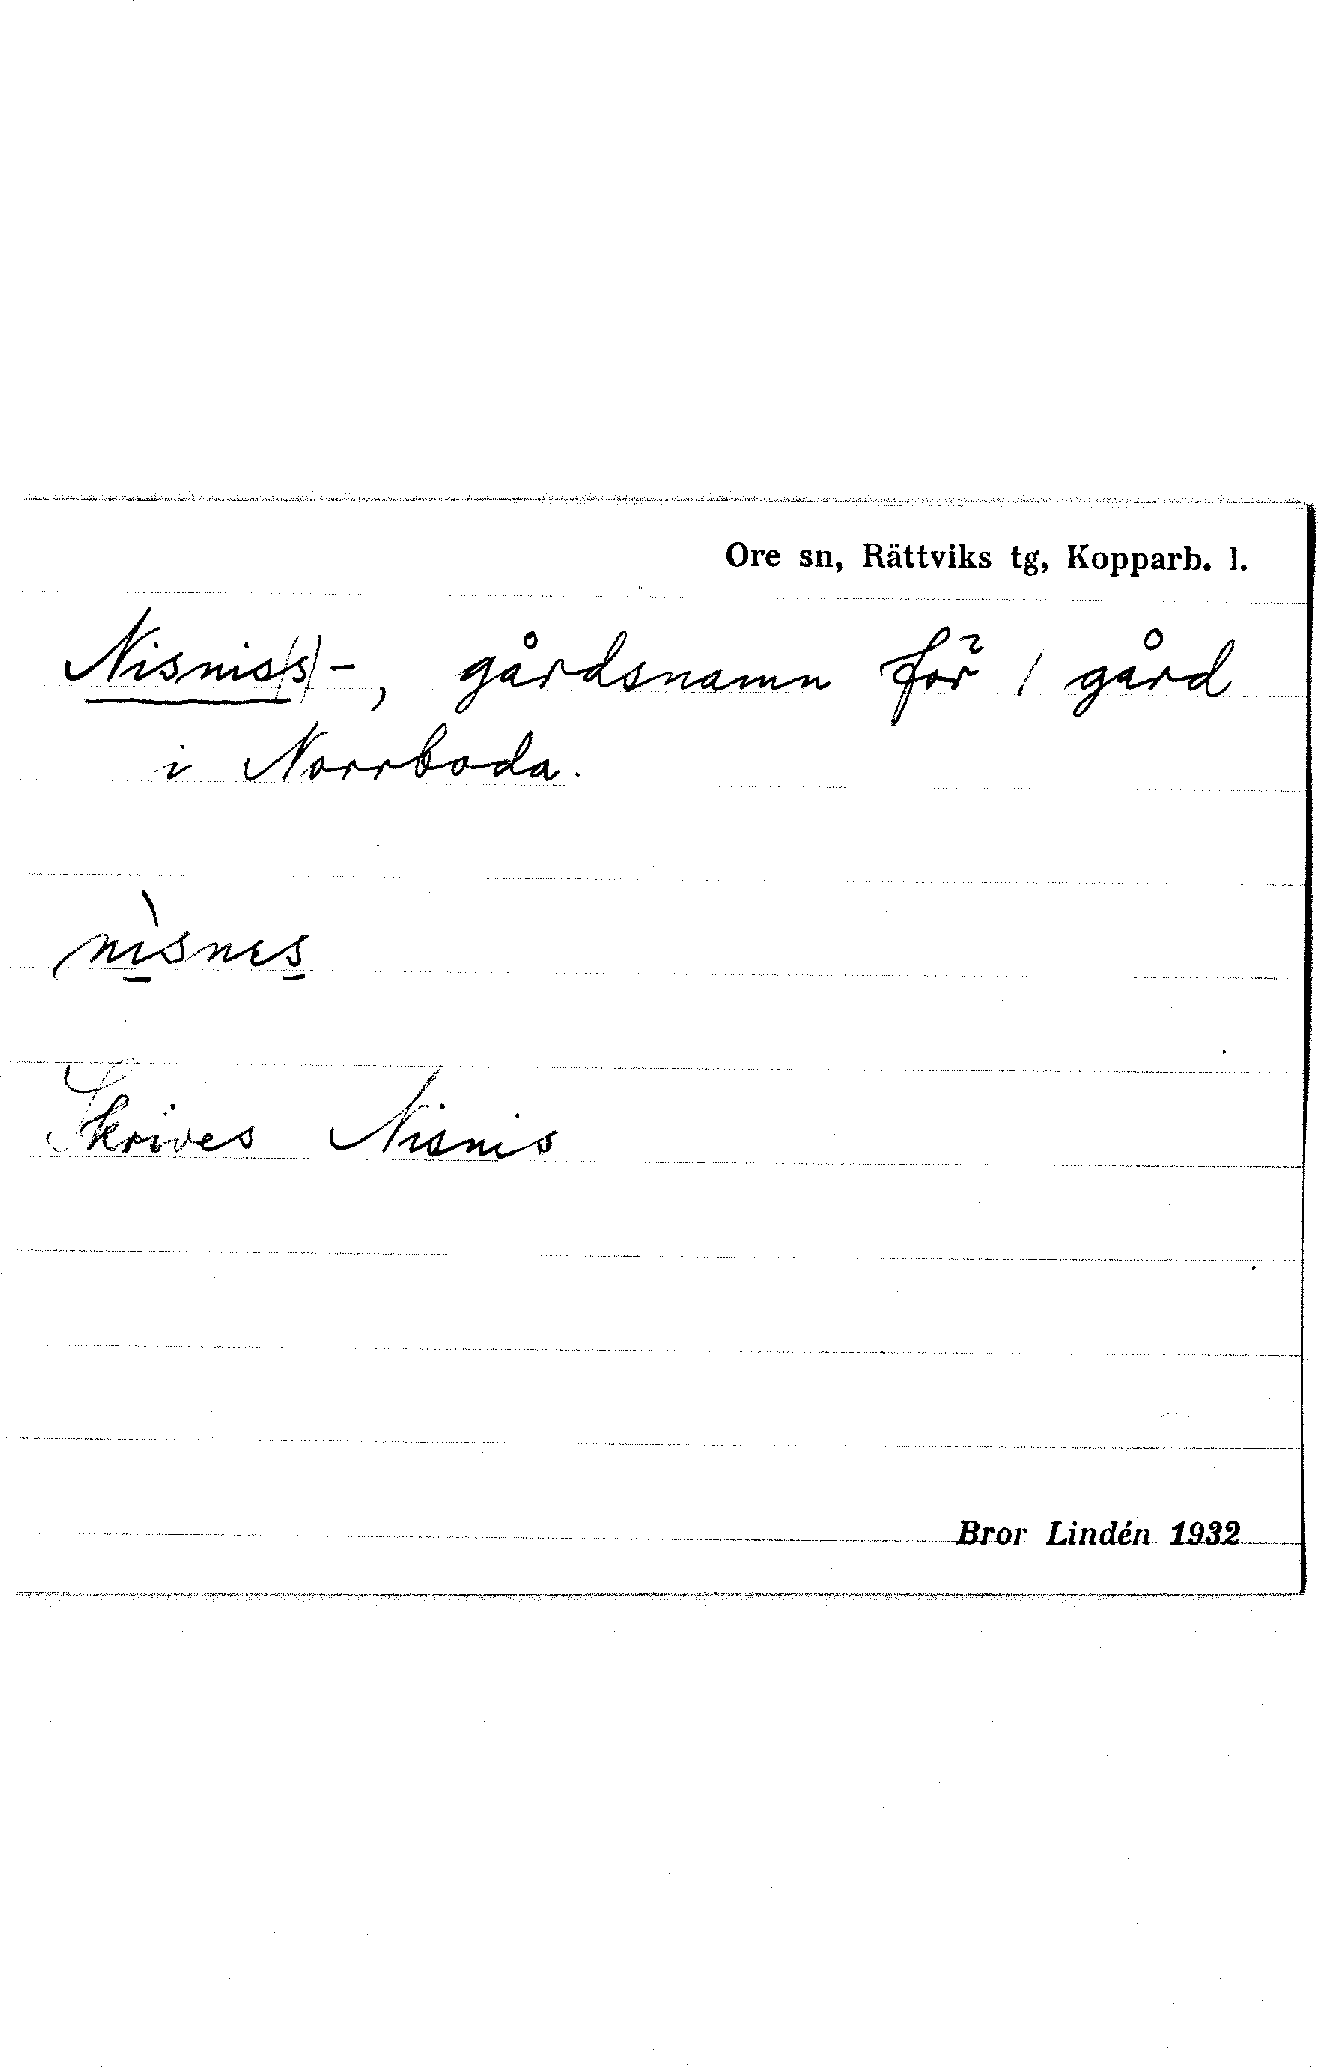 Ore sn, Rättviks tg, Kopparb. l.
Nisnis(s)-, gårdsnamn för 1 gård
i Norrboda.
nìsnɩs
Skrives Nisnis
Bror Lindén 1932